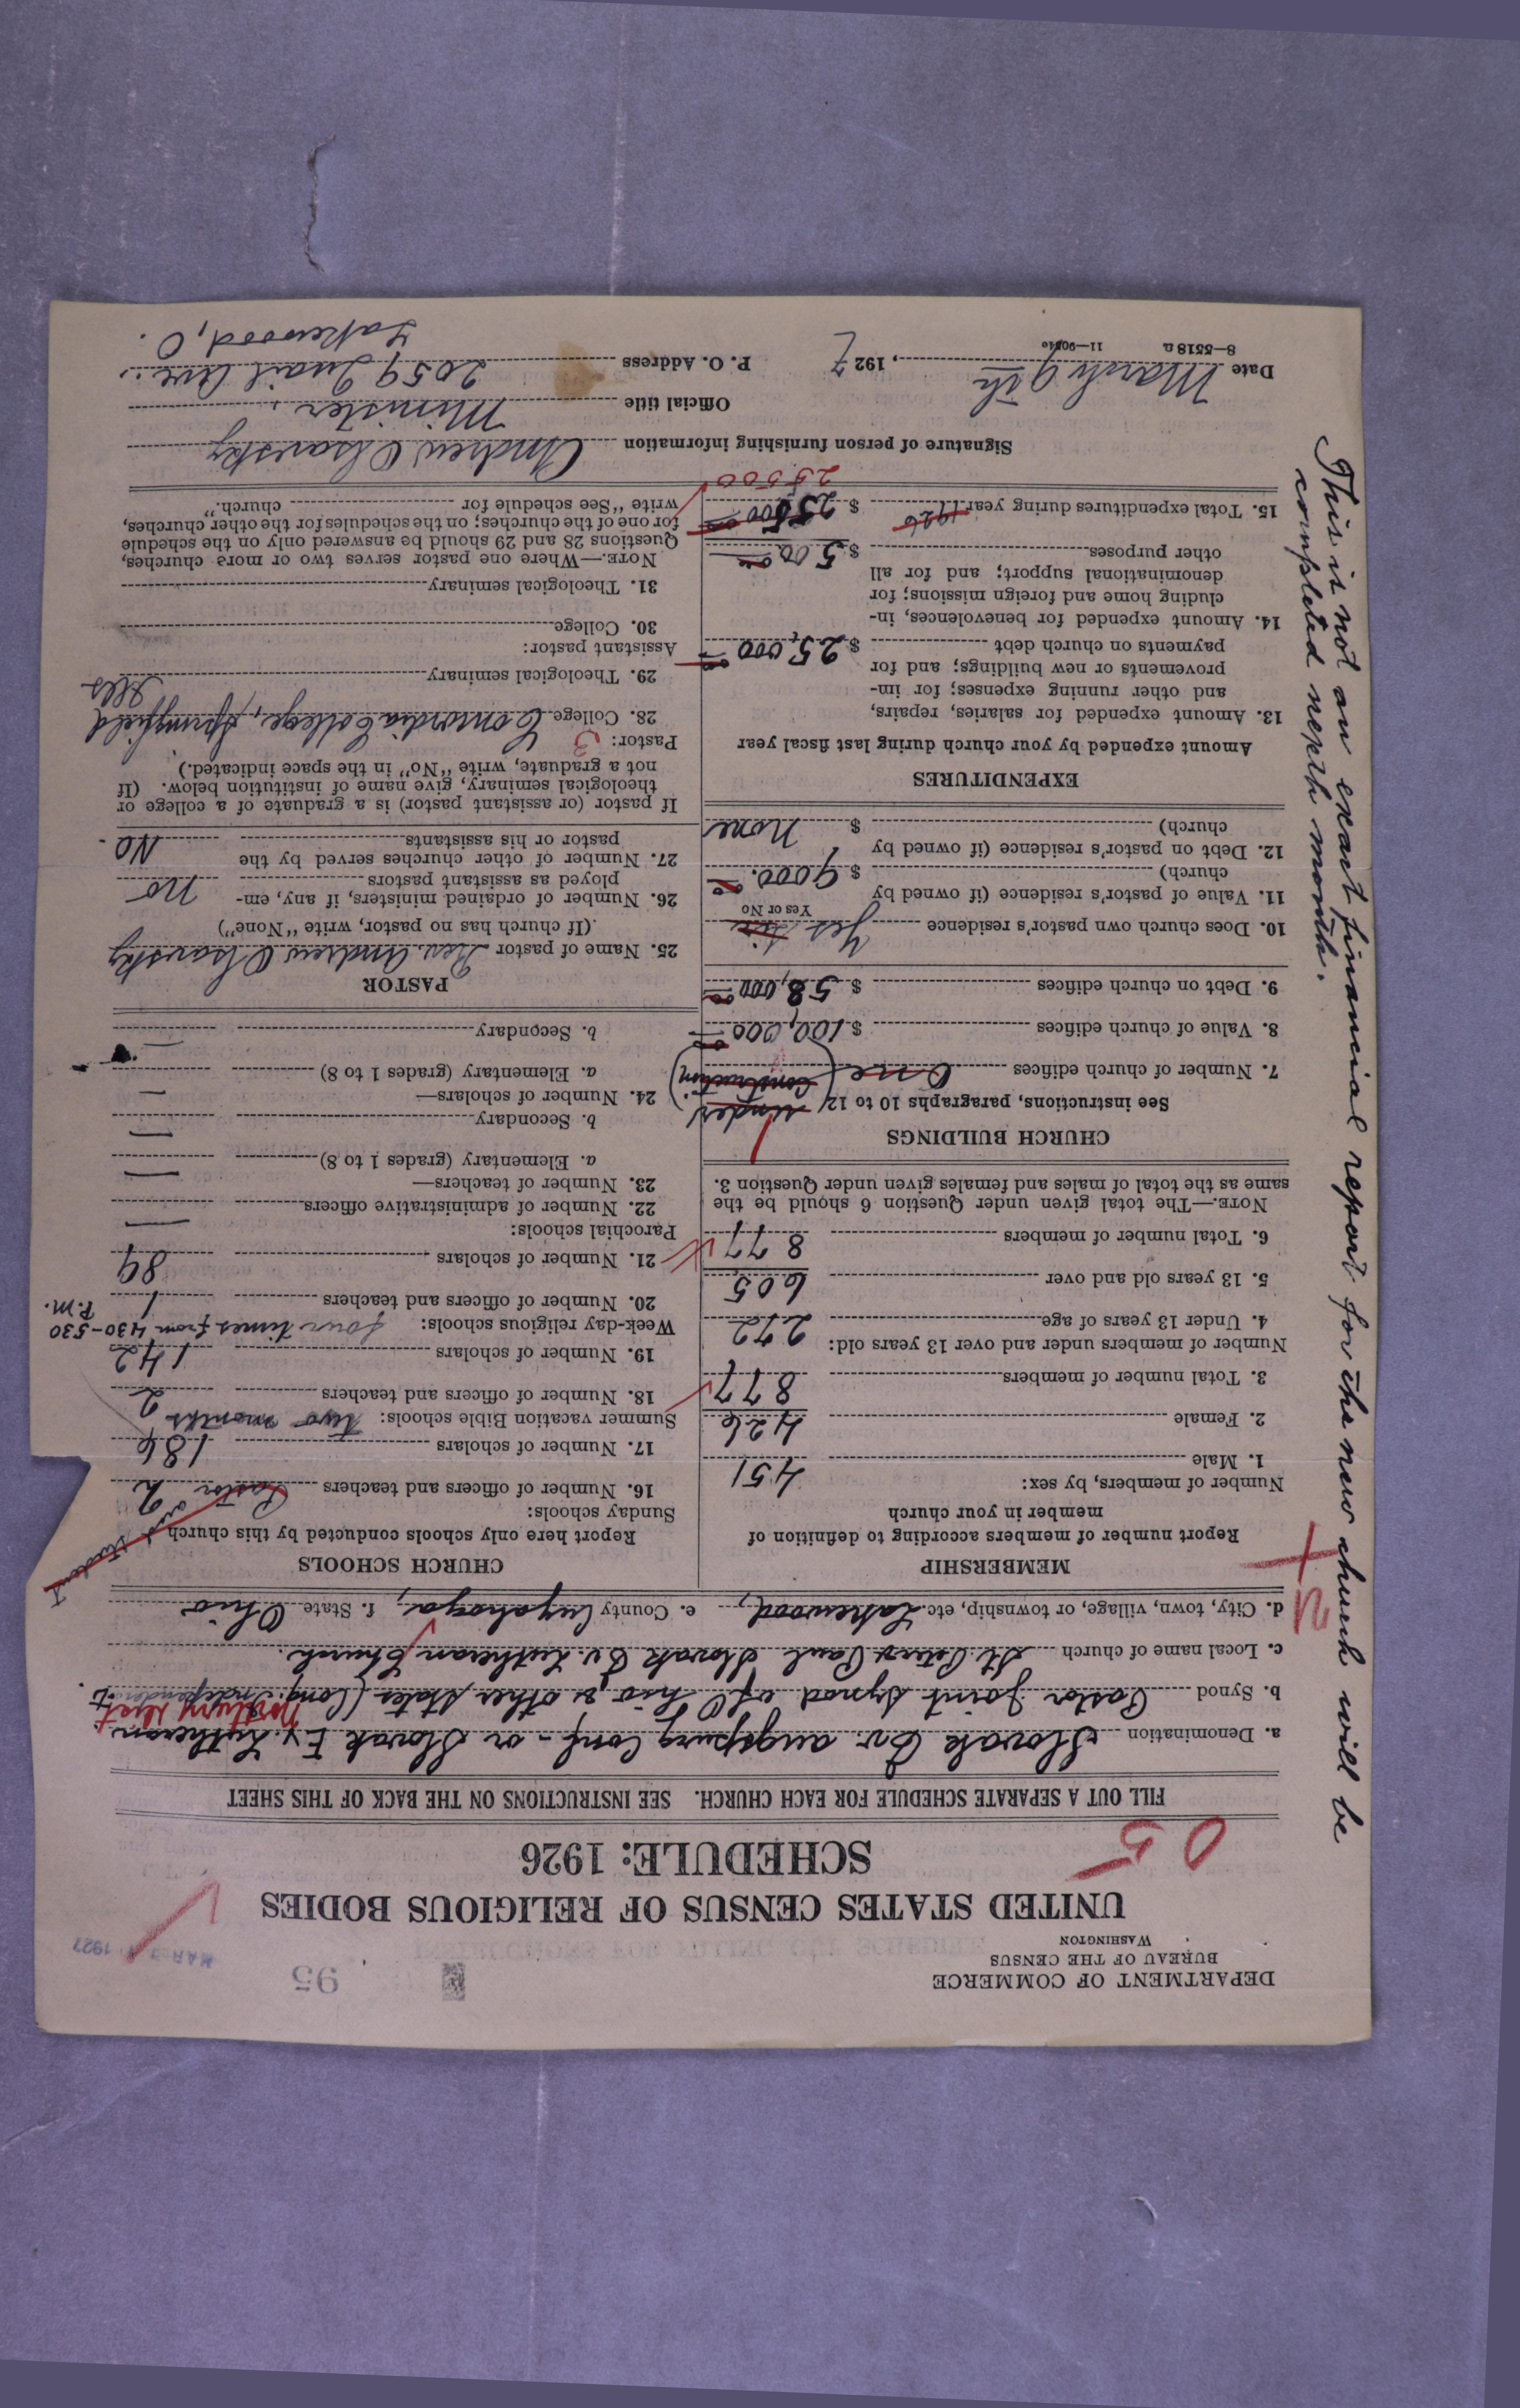 DEPARTMENT OF COMMERCE
BUREAU OF THE CENSUS
WASHINGTON
95
MAR 1927
UNITED STATES CENSUS OF RELIGIOUS BODIES
SCHEDULE: 1926
05
FILL OUT A SEPARATE SCHEDULE FOR EACH CHURCH. SEE INSTRUCTIONS ON THE BACK OF THIS SHEET
a. Denomination Slovak Ev. Augspurg Conf - or Slovak Ev. Lutheran
b. Synod Pastor Joint Synod of Ohio & other states (Cong. Independent
c. Local name of church St. Peter & Paul Slovak Ev. Lutheran Church.
d. City, town, village, or township, etc. Lakewood, e. County Cuyahoga, f. State Ohio
MEMBERSHIP
Report number of members according to definition of
member in your church
Number of members, by sex:
1. Male 451
2. Female 426
3. Total number of members 877
Number of members under and over 13 years old:
4. Under 13 years of age 272
5. 13 years old and over 605
6. Total number of members 877
NOTE.—The total given under Question 6 should be the
same as the total of males and females given under Question 3.
CHURCH BUILDINGS
See instructions, paragraphs 10 to 12
7. Number of church edifices One (Under Construction.)
8. Value of church edifices $ 100,000 00
9. Debt on church edifices $ 58,000 00
10. Does church own pastor's residence Yes
Yes or No
11. Value of pastor's residence (if owned by
church) $ 9000. 00
12. Debt on pastor's residence (if owned by
church) $ none
EXPENDITURES
Amount expended by your church during last fiscal year
13. Amount expended for salaries, repairs,
and other running expenses; for im-
provements or new buildings; and for
payments on church debt $ 25,000 00
14. Amount expended for benevolences, in-
cluding home and foreign missions; for
denominational support; and for all
other purposes $ 500 00
15. Total expenditures during year 1926 $ 25500 00
25500
CHURCH SCHOOLS
Report here only schools conducted by this church
Sunday schools:
16. Number of officers and teachers Pastor and 2
17. Number of scholars 186
Summer vacation Bible schools: two months
18. Number of officers and teachers 2
19. Number of scholars 142
Week-day religious schools: four times from 430-530 P.M.
20. Number of officers and teachers 1
21. Number of scholars 89
Parochial schools:
22. Number of administrative officers —
23. Number of teachers—
a. Elementary (grades 1 to 8) —
b. Secondary —
24. Number of scholars— —
a. Elementary (grades 1 to 8)
b. Secondary —
PASTOR
25. Name of pastor Rev. Andrew Olsavsky
(If church has no pastor, write "None")
26. Number of ordained ministers, if any, em-
ployed as assistant pastors no
27. Number of other churches served by the
pastor or his assistants No.
If pastor (or assistant pastor) is a graduate of a college or
theological seminary, give name of institution below. (If
not a graduate, write "No" in the space indicated.)
Pastor: 3
28. College Concordia College, Springfield
Ills
29. Theological seminary
Assistant pastor:
30. College
31. Theological seminary
NOTE.—Where one pastor serves two or more churches,
Questions 28 and 29 should be answered only on the schedule
for one of the churches; on the schedules for the other churches,
write "See schedule for church."
Signature of person furnishing information Andrew Olsavsky
Official title Minister.
Date March 9th, 1927 P. O. Address 2059 Quail Ave.,
Lakewood, O.
8—5518 a 11—9051c
This is not an exact financial report for the new church will be
completed nexth month.